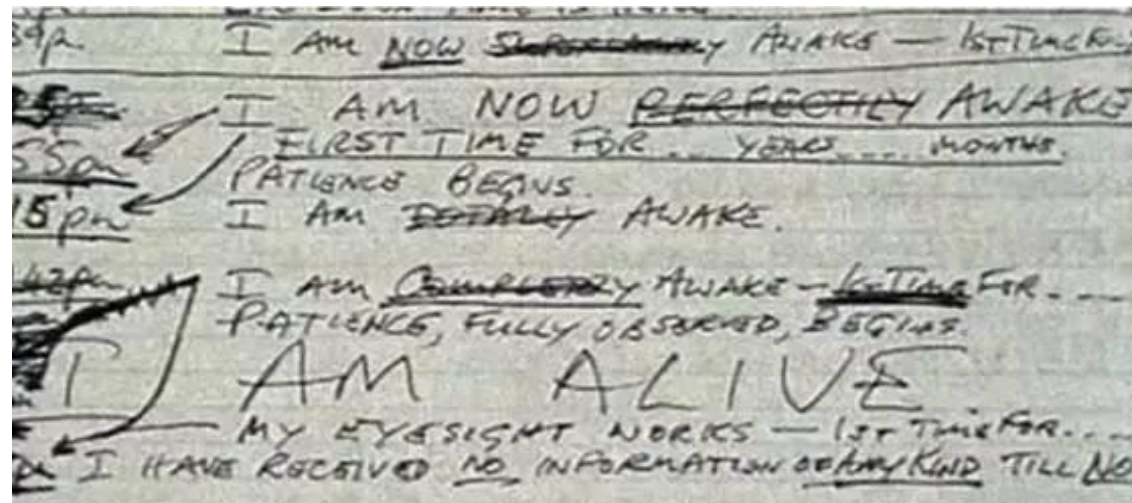 I AM NOW SUPERLATIVELY AWAKE — 1ST TIME FOR
I AM NOW PERFECTLY AWAKE
55pm FIRST TIME FOR... YEARS.... MONTHS.
PATIENCE BEGINS.
15pm I AM TOTALLY AWAKE.
42pm I AM COMPLETELY AWAKE — 1ST TIME FOR....
PATIENCE, FULLY OBSERVED, BEGINS.
I AM ALIVE
MY EYESIGHT WORKS — 1ST TIME FOR....
I HAVE RECEIVED NO INFORMATION OF ANY KIND TILL NO